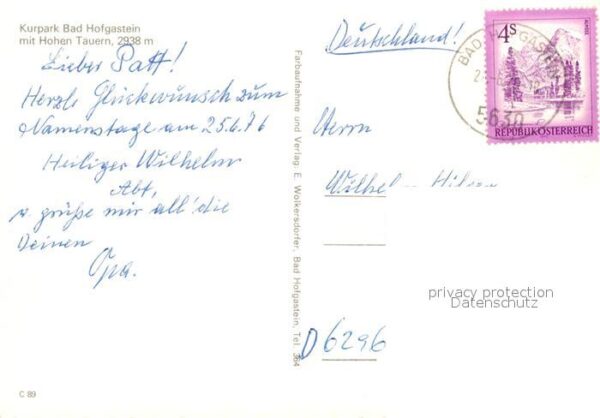 Kurpark Bad Hofgastein
mit Hohen Tauern, 2938 m
Lieber Patt!
Herzl. Glückwunsch zum
Namenstage am 25.6.76
Heiliger Wilhelm
Abt,
u. grüße mir all' die
Deinen
Opa.
C 89
Farbaufnahme und Verlag: E. Wolkersdorfer, Bad Hofgastein, Tel. 364
Deutschland!
Herrn
Wilhel-
D 6296
4S
BAD HOFGASTEIN
5630
REPUBLIK ÖSTERREICH
privacy protection
Datenschutz